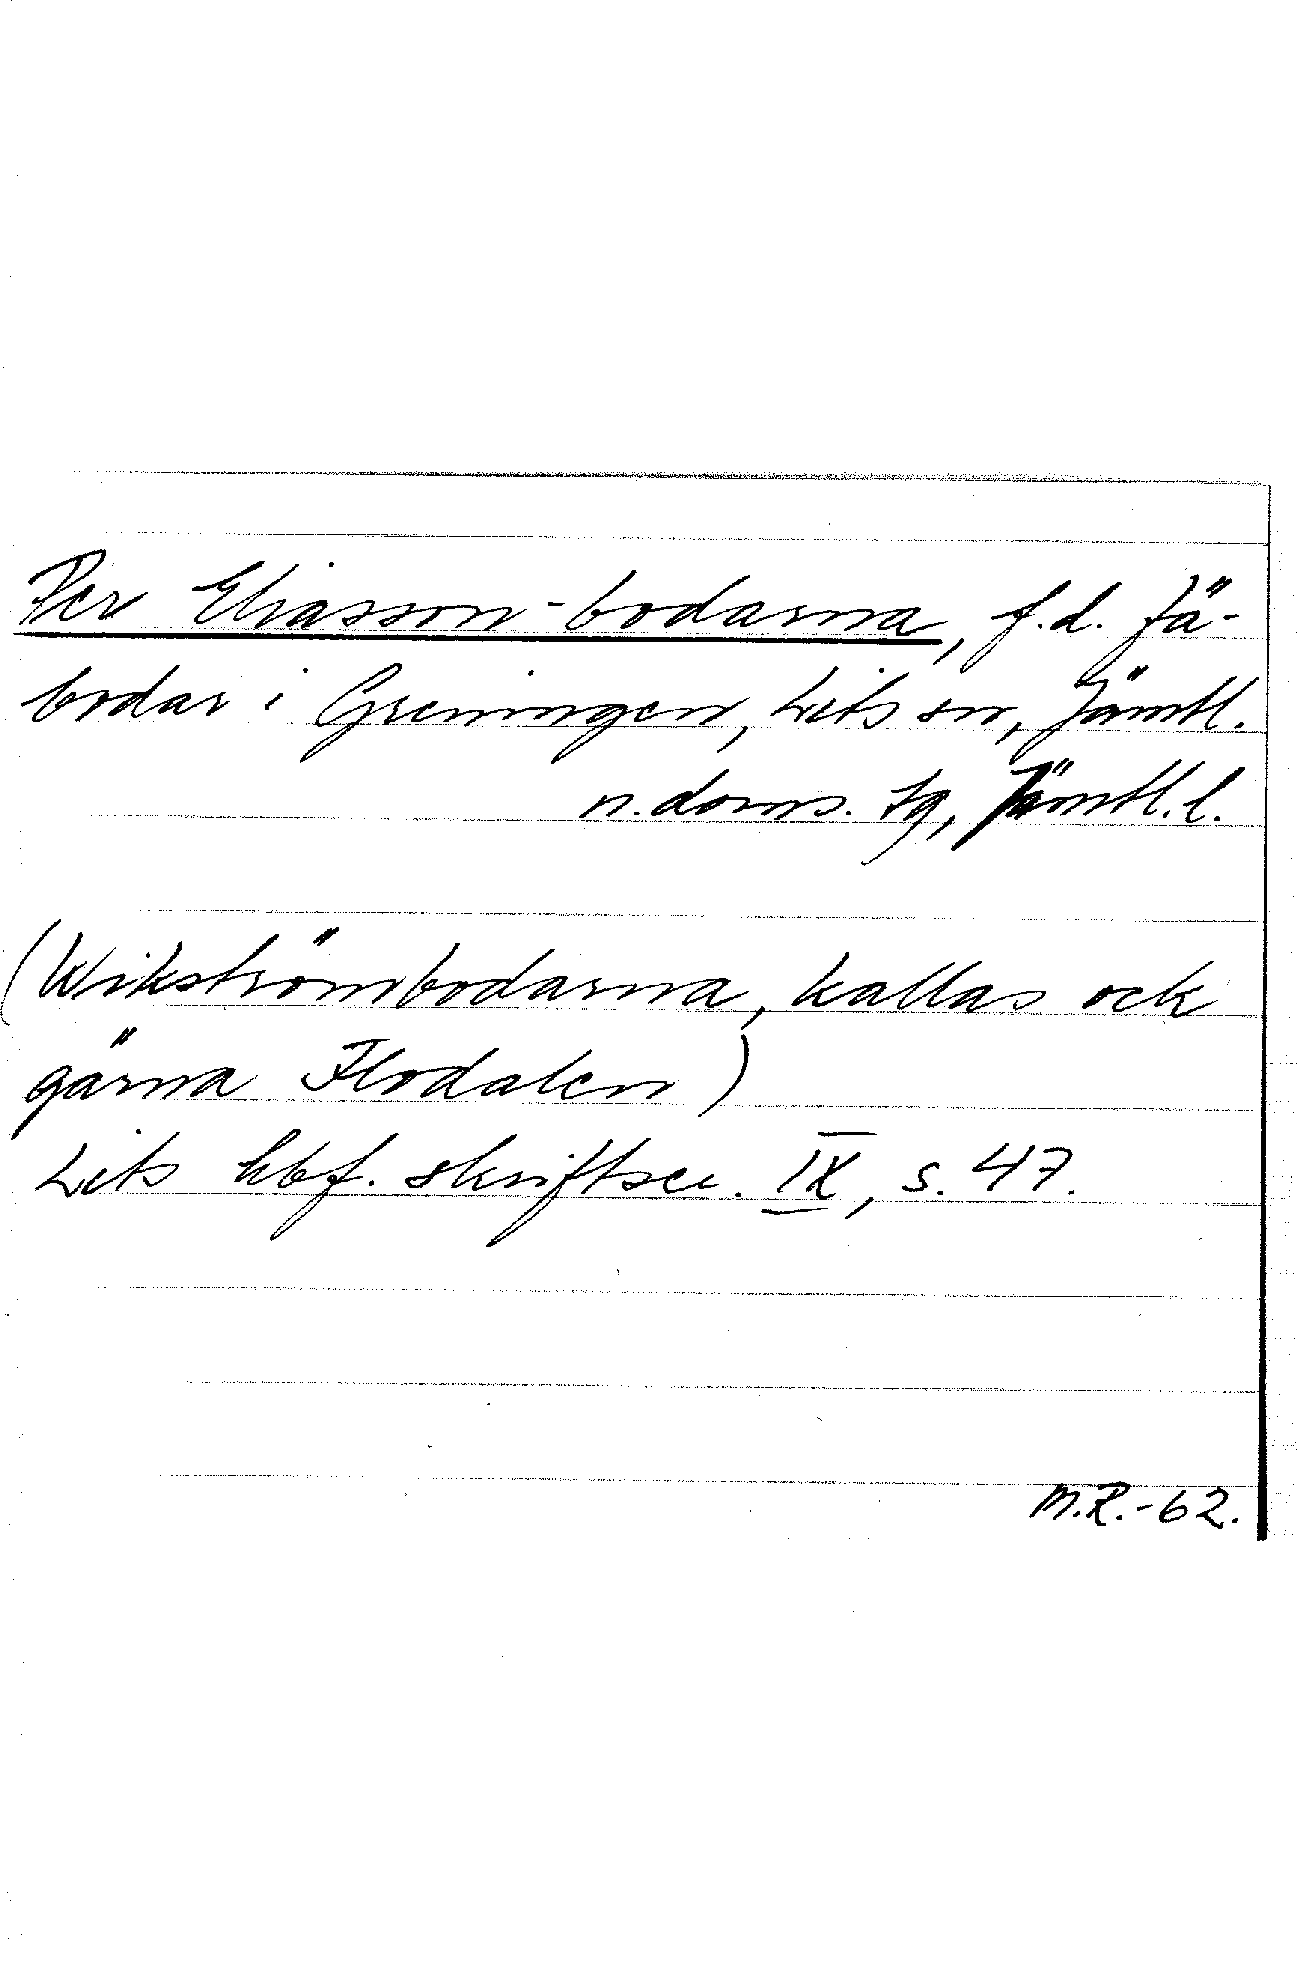 Per Eliasson-bodarna, f.d. fä-
bodar i Greningen, Lits sn, Jämtl.
n. doms. tg, Jämtl. l.
(Wikströmbodarna, kallas ock
gärna Flodalen)
Lits hbf. skriftser. IX, s. 47.
M.R.-62.